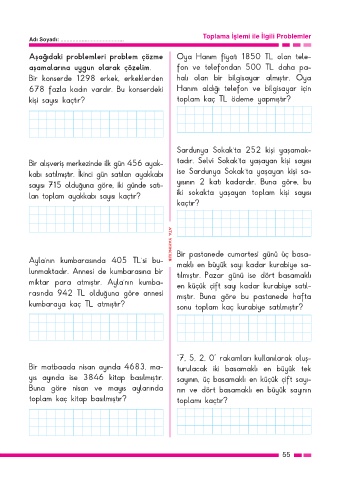 Adı Soyadı: ..............................
Toplama İşlemi ile İlgili Problemler
Aşağıdaki problemleri problem çözme
aşamalarına uygun olarak çözelim.
Bir konserde 1298 erkek, erkeklerden
678 fazla kadın vardır. Bu konserdeki
kişi sayısı kaçtır?
Bir alışveriş merkezinde ilk gün 456 ayak-
kabı satılmıştır. İkinci gün satılan ayakkabı
sayısı 715 olduğuna göre, iki günde satı-
lan toplam ayakkabı sayısı kaçtır?
Ayla'nın kumbarasında 405 TL'si bu-
lunmaktadır. Annesi de kumbarasına bir
miktar para atmıştır. Ayla'nın kumba-
rasında 942 TL olduğuna göre annesi
kumbaraya kaç TL atmıştır?
Bir matbaada nisan ayında 4683, ma-
yıs ayında ise 3846 kitap basılmıştır.
Buna göre nisan ve mayıs aylarında
toplam kaç kitap basılmıştır?
Oya Hanım fiyatı 1850 TL olan tele-
fon ve telefondan 500 TL daha pa-
halı olan bir bilgisayar almıştır. Oya
Hanım aldığı telefon ve bilgisayar için
toplam kaç TL ödeme yapmıştır?
Sardunya Sokak'ta 252 kişi yaşamak-
tadır. Selvi Sokak'ta yaşayan kişi sayısı
ise Sardunya Sokak'ta yaşayan kişi sa-
yısının 2 katı kadardır. Buna göre, bu
iki sokakta yaşayan toplam kişi sayısı
kaçtır?
Bir pastanede cumartesi günü üç basa-
maklı en büyük sayı kadar kurabiye sa-
tılmıştır. Pazar günü ise dört basamaklı
en küçük çift sayı kadar kurabiye satıl-
mıştır. Buna göre bu pastanede hafta
sonu toplam kaç kurabiye satılmıştır?
"7, 5, 2, 0" rakamları kullanılarak oluş-
turulacak iki basamaklı en büyük tek
sayının, üç basamaklı en küçük çift sayı-
nın ve dört basamaklı en büyük sayının
toplamı kaçtır?
55